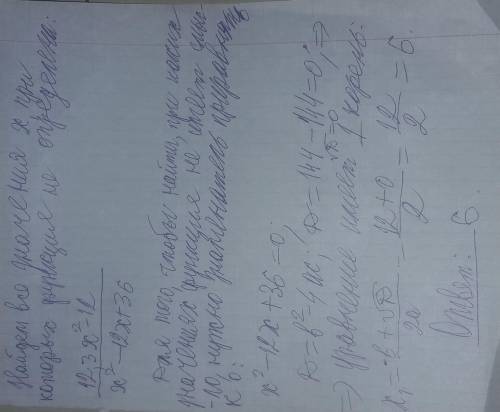 Найдем все значения x при
которых функция не определена:
12,3x²-12
x²-12x+36
Для того чтобы найти, при каких
значениях функция не имеет смыс-
-ла нужно знаменатель приравнять
к 0:
x²-12x+36=0;
D=b²-4ac; D=144-144=0; ⇒
√D=0
⇒ уравнение имеет 1 корень:
x₁=-b+√D/2a = 12+0/2 = 12/2 = 6.
Ответ: 6.